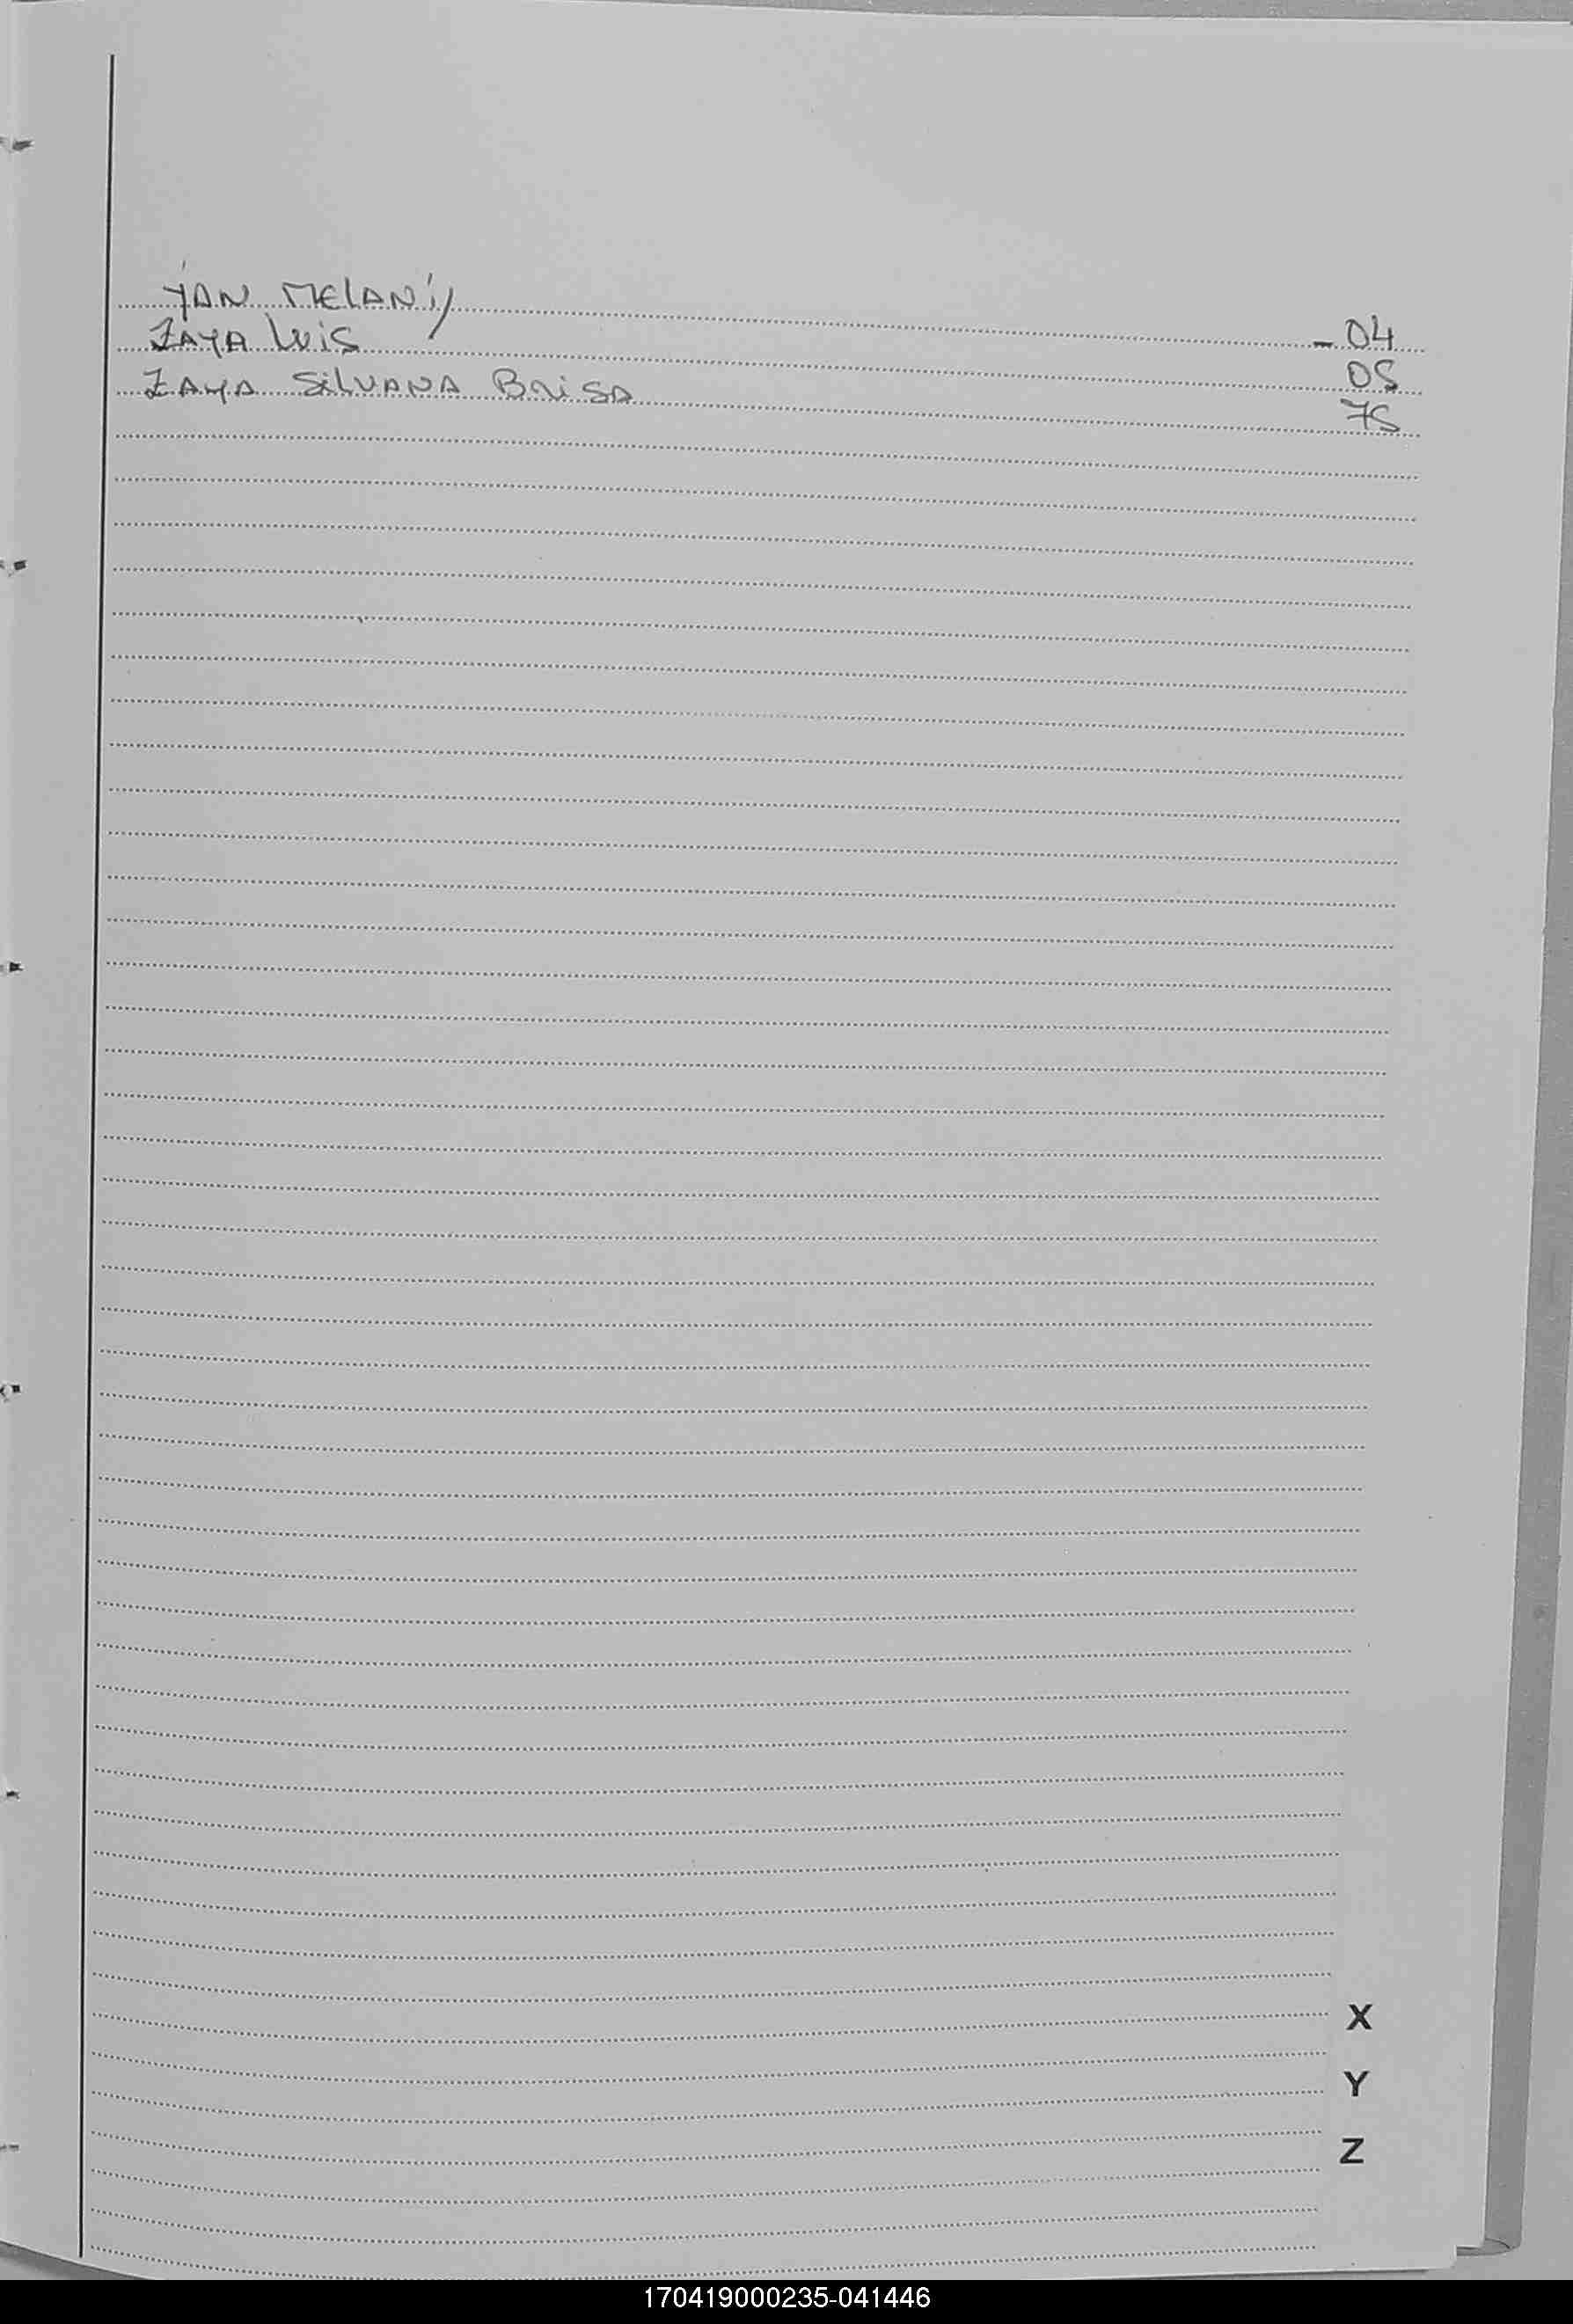 YAN MELANY - 04
ZAYA LUIS 05
ZAYA SILVANA BRISA 75
X
Y
Z
170419000235-041446